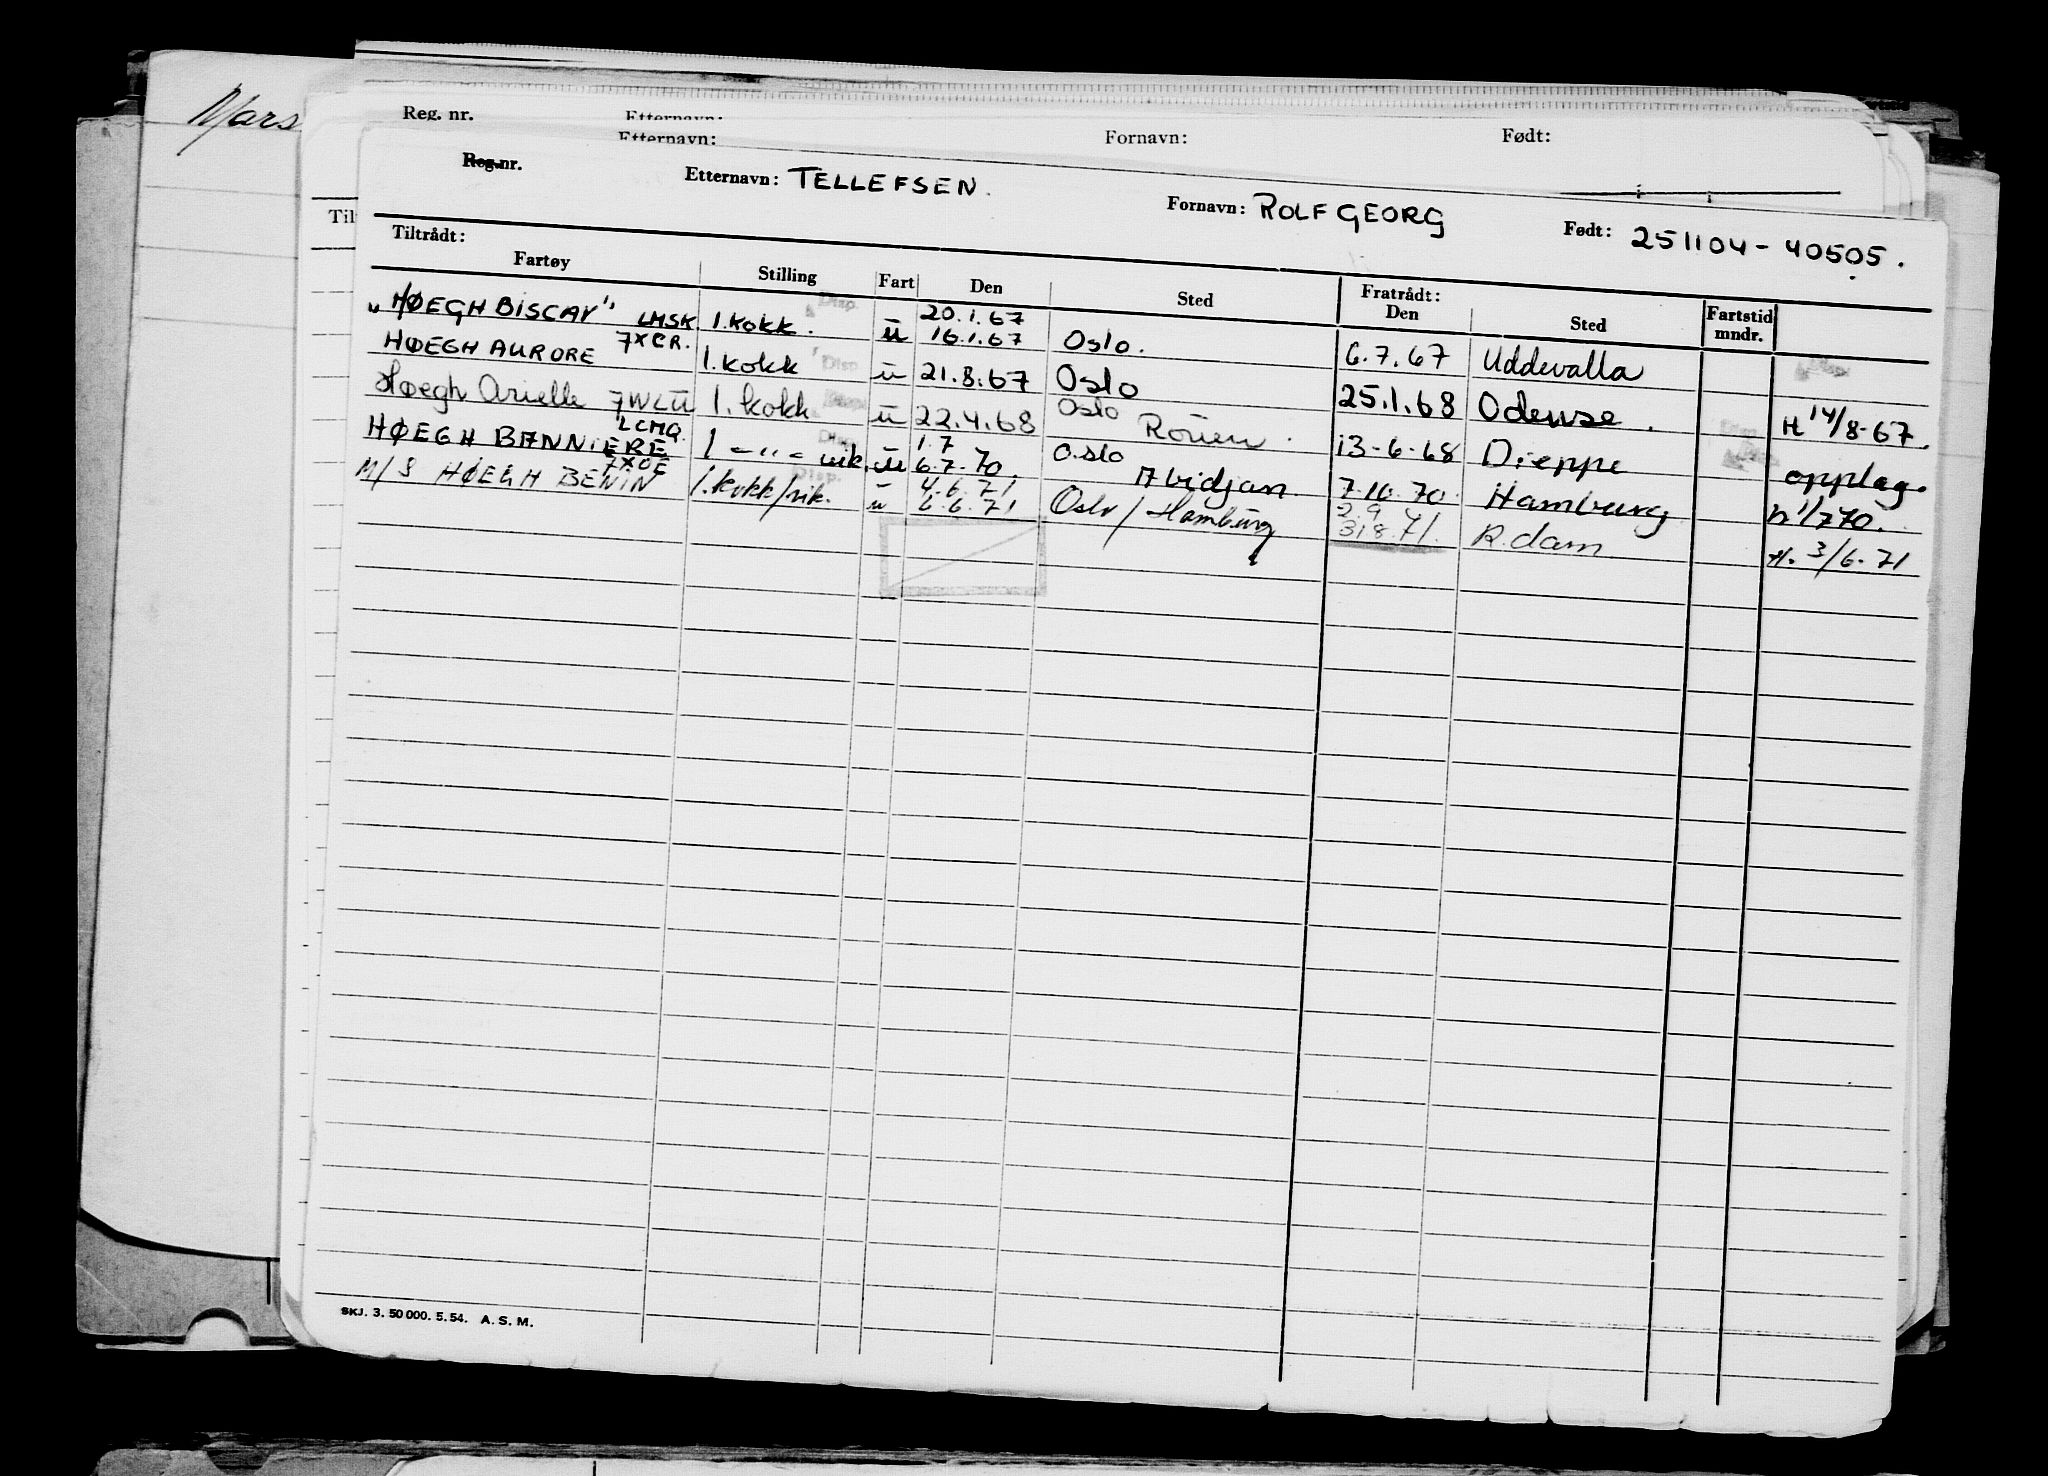 Mars
Reg. nr. Etternavn:
Etternavn: Fornavn: Født:
Reg. nr. Etternavn: TELLEFSEN. Fornavn: ROLF GEORG Født: 251104-40505.
Til
Tiltrådt: Fratrådt:
Fartøy Stilling Fart Den Sted Den Sted Fartstid mndr.
20.1.67
"HØEGH BISCAY" LMSK 1. kokk. ü 16.1.67 Oslo. 6.7.67 Uddevalla
7XCR.
HØEGH AURORE 1. kokk ü 21.8.67 Oslo 25.1.68 Odense. H 14/8-67.
Høegh Arielle 7WLU 1. kokk ü 22.4.68 Oslo Rouen. 13-6-68 Dieppe opplag.
LCMQ. 1.7
HØEGH BANNIERE 1 -"- vik. ü 6.7.70. Oslo Abidjan. 7.10.70. Hamburg H 1/770.
7XOE 4.6.71 2.9
M/S HØEGH BENIN 1. kokk/vik. ü 6.6.71 Oslo/Hamburg 31.8.71. R.dam H. 3/6.71
SKJ. 3. 50 000. 5. 54. A. S. M.